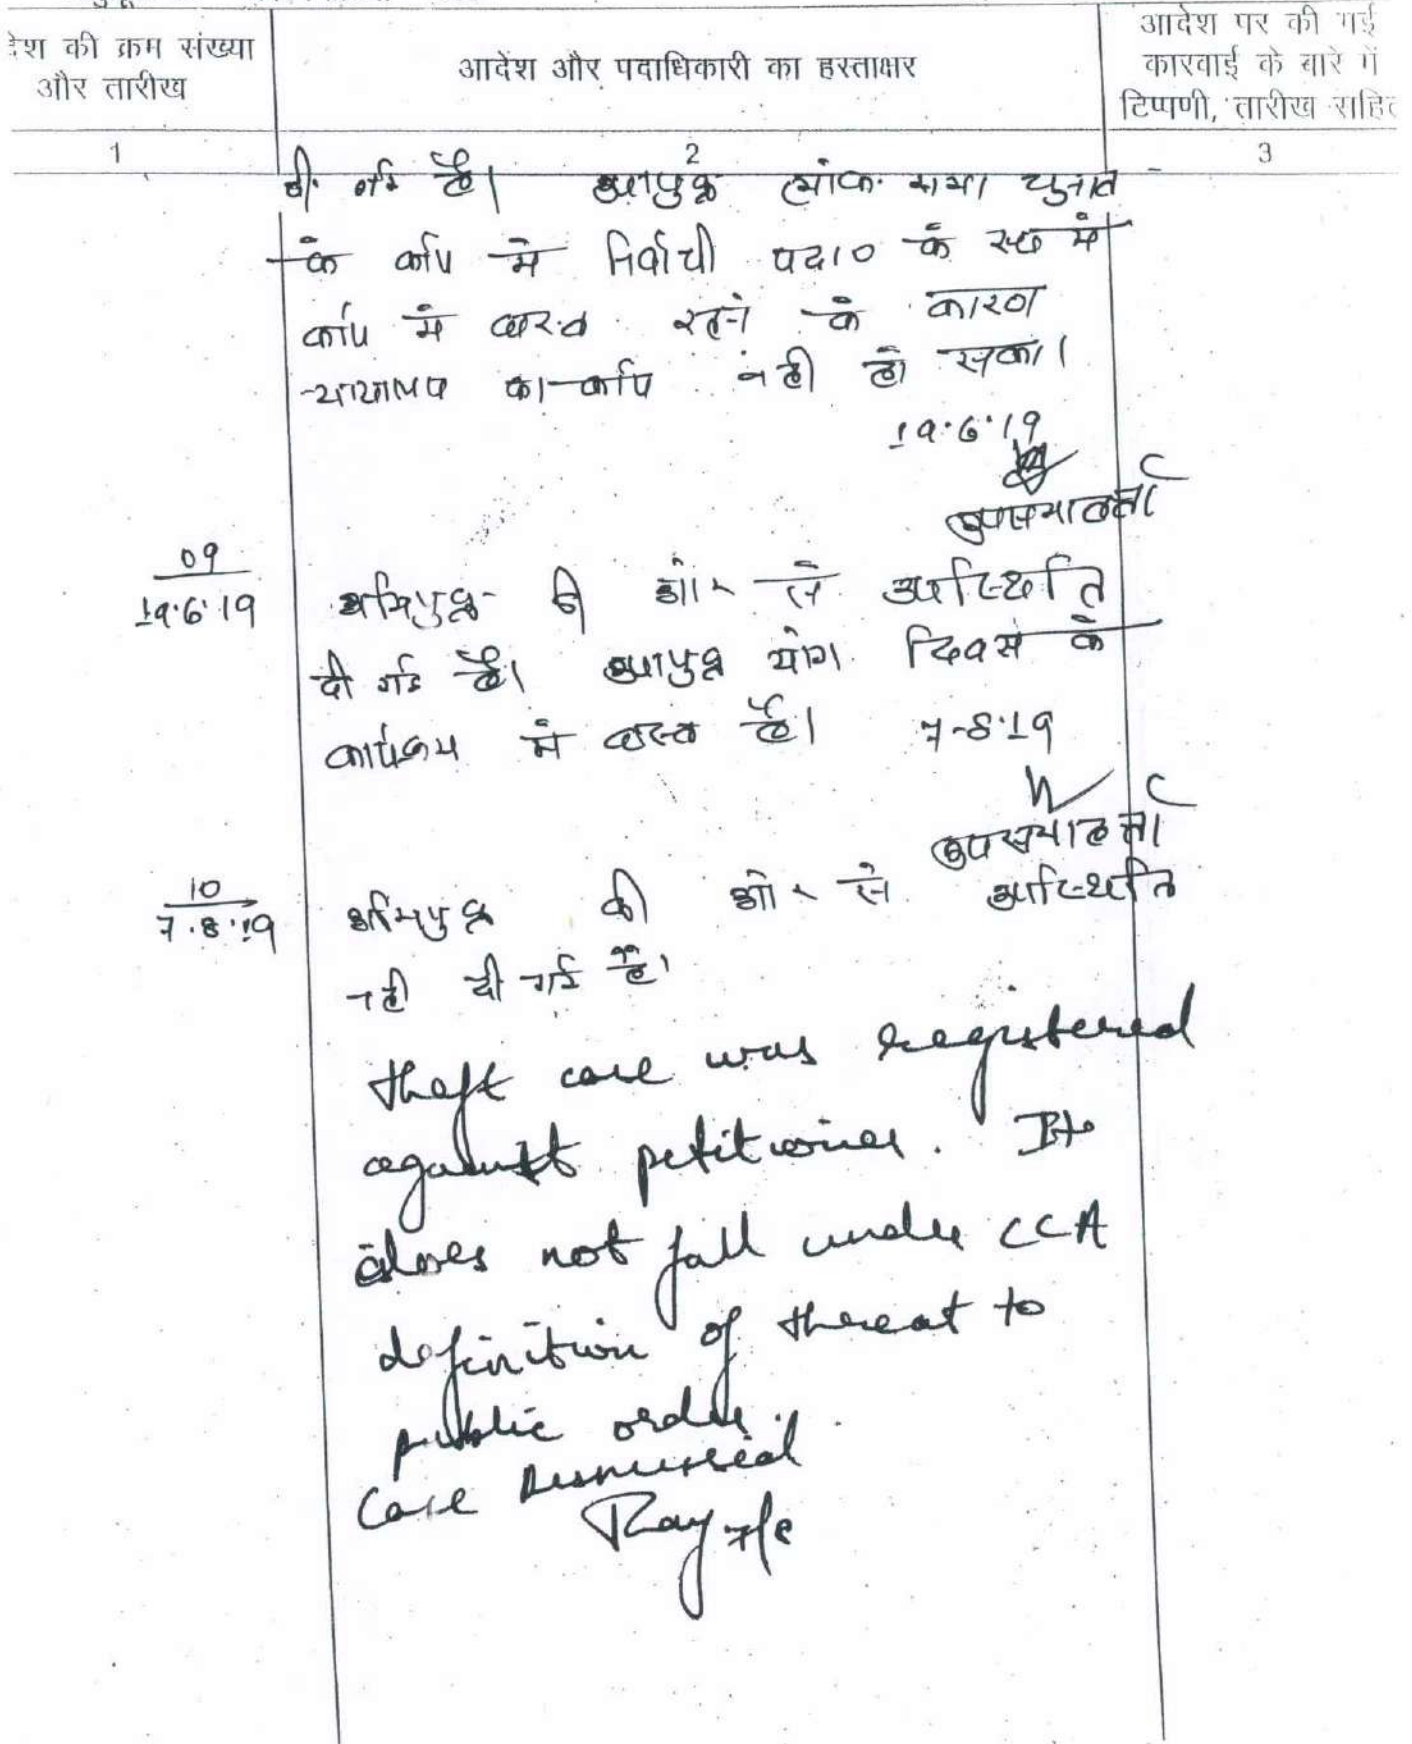 देश की क्रम संख्या
और तारीख
आदेश और पदाधिकारी का हस्ताक्षर
आदेश पर की गई
कारवाई के बारे में
टिप्पणी, तारीख सहित
1
2
3
दी गई है। आयुक्त लोक सभा चुनाव
के कार्य में निर्वाची पदा० के रूप में
कार्य में व्यस्त रहने के कारण
न्यायालय का कार्य नही हो सका।
19.6.19
उपसमाहर्ता
09
19.6.19
अभियुक्त की ओर से उपस्थिति
दी गई है। आयुक्त योग दिवस के
कार्यक्रम में व्यस्त है। 7-8.19
उपसमाहर्ता
10
7.8.19
अभियुक्त की ओर से उपस्थिति
नही दी गई है।
theft case was registered
against petitioner. It
does not fall under CCA
definition of threat to
public order.
Case Dismissed
Ray 7/8